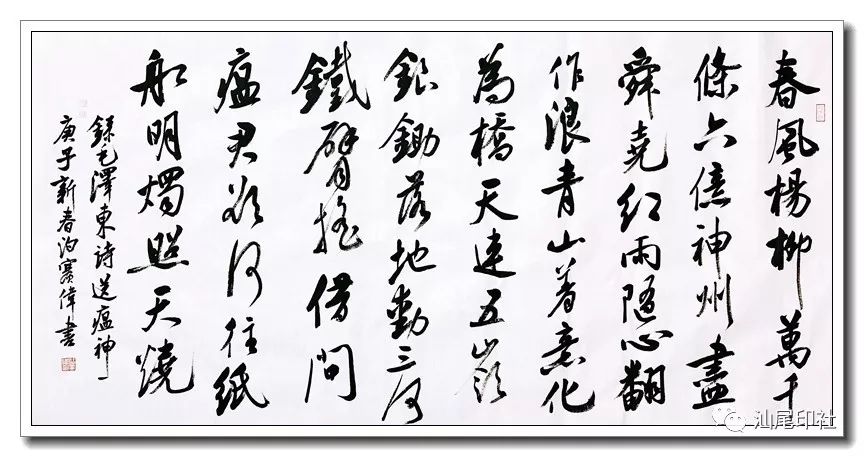 春風楊柳萬千
條六億神州盡
舜堯紅雨隨心翻
作浪青山着意化
為橋天連五嶺
銀鋤落地動三河
鐵臂搖借問
瘟君欲何往紙
船明燭照天燒
錄毛澤東詩送瘟神一
庚子新春偉書
汕尾印社